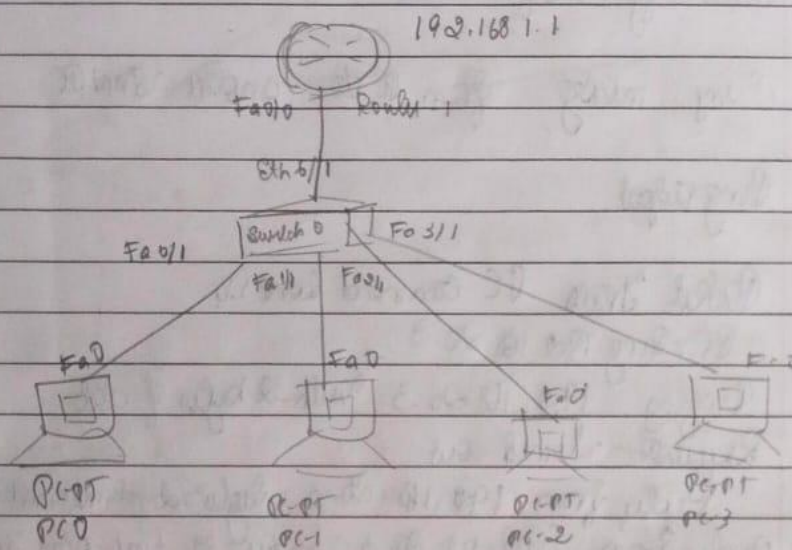 192.168 1.1
Fa0/0
Eth 6/1
Switch 0
Fa 3/1
Fa 0/1
Fa 1/1
Fa 0
Fa 0
Fa0
PC-PT
PC0
PC-PT
PC-1
PC-PT
PC-2
PC-PT
PC-3